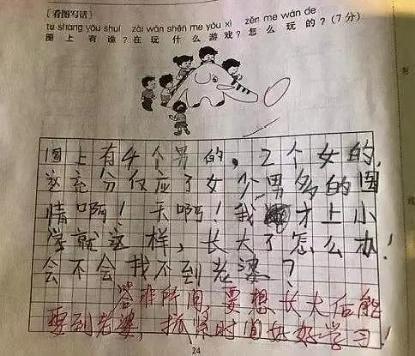 〔看图写话〕
tú shang yǒu shuí zài wán shén me yóu xì zěn me wán de
图上有谁？在玩什么游戏？怎么玩的？(7分)
图上有4个男的，2个女的，
这充分反应了女少男多的国
情啊！天啊！我才上小
学就这样，长大了怎么办！
会不会找不到老婆？
答非所问，要想长大后能
要到老婆，抓紧时间好好学习！
24